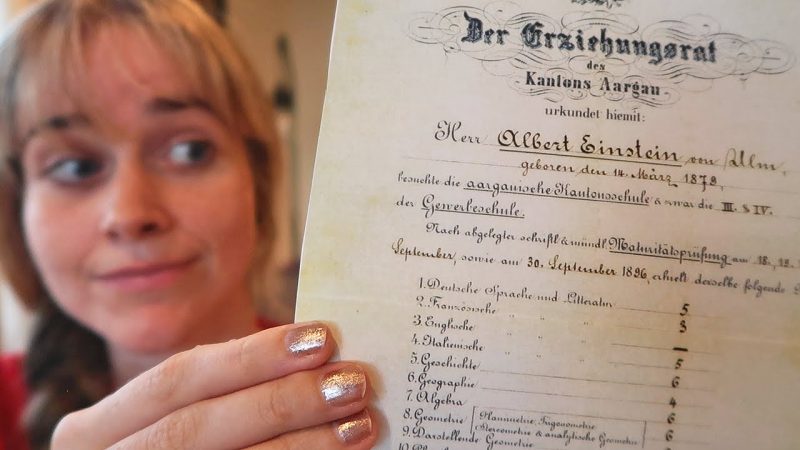 Der Erziehungsrat
des
Kantons Aargau
urkundet hiemit:
Herr Albert Einstein von Ulm,
geboren den 14. März 1879,
besuchte die aargauische Kantonsschule & zwar die III. & IV.
der Gewerbeschule.
Nach abgelegter schriftl. & mündl. Maturitätsprüfung am 18., 19.
September, sowie am 30. September 1896, erhielt derselbe folgende
1. Deutsche Sprache und Litteratur 5
2. Französische " " " 3
3. Englische " " " —
4. Italienische " " " 5
5. Geschichte 6
6. Geographie 4
7. Algebra 6
8. Geometrie Planimetrie, Trigonometrie
Stereometrie & analytische Geometrie 6
9. Darstellende Geometrie 6
10.